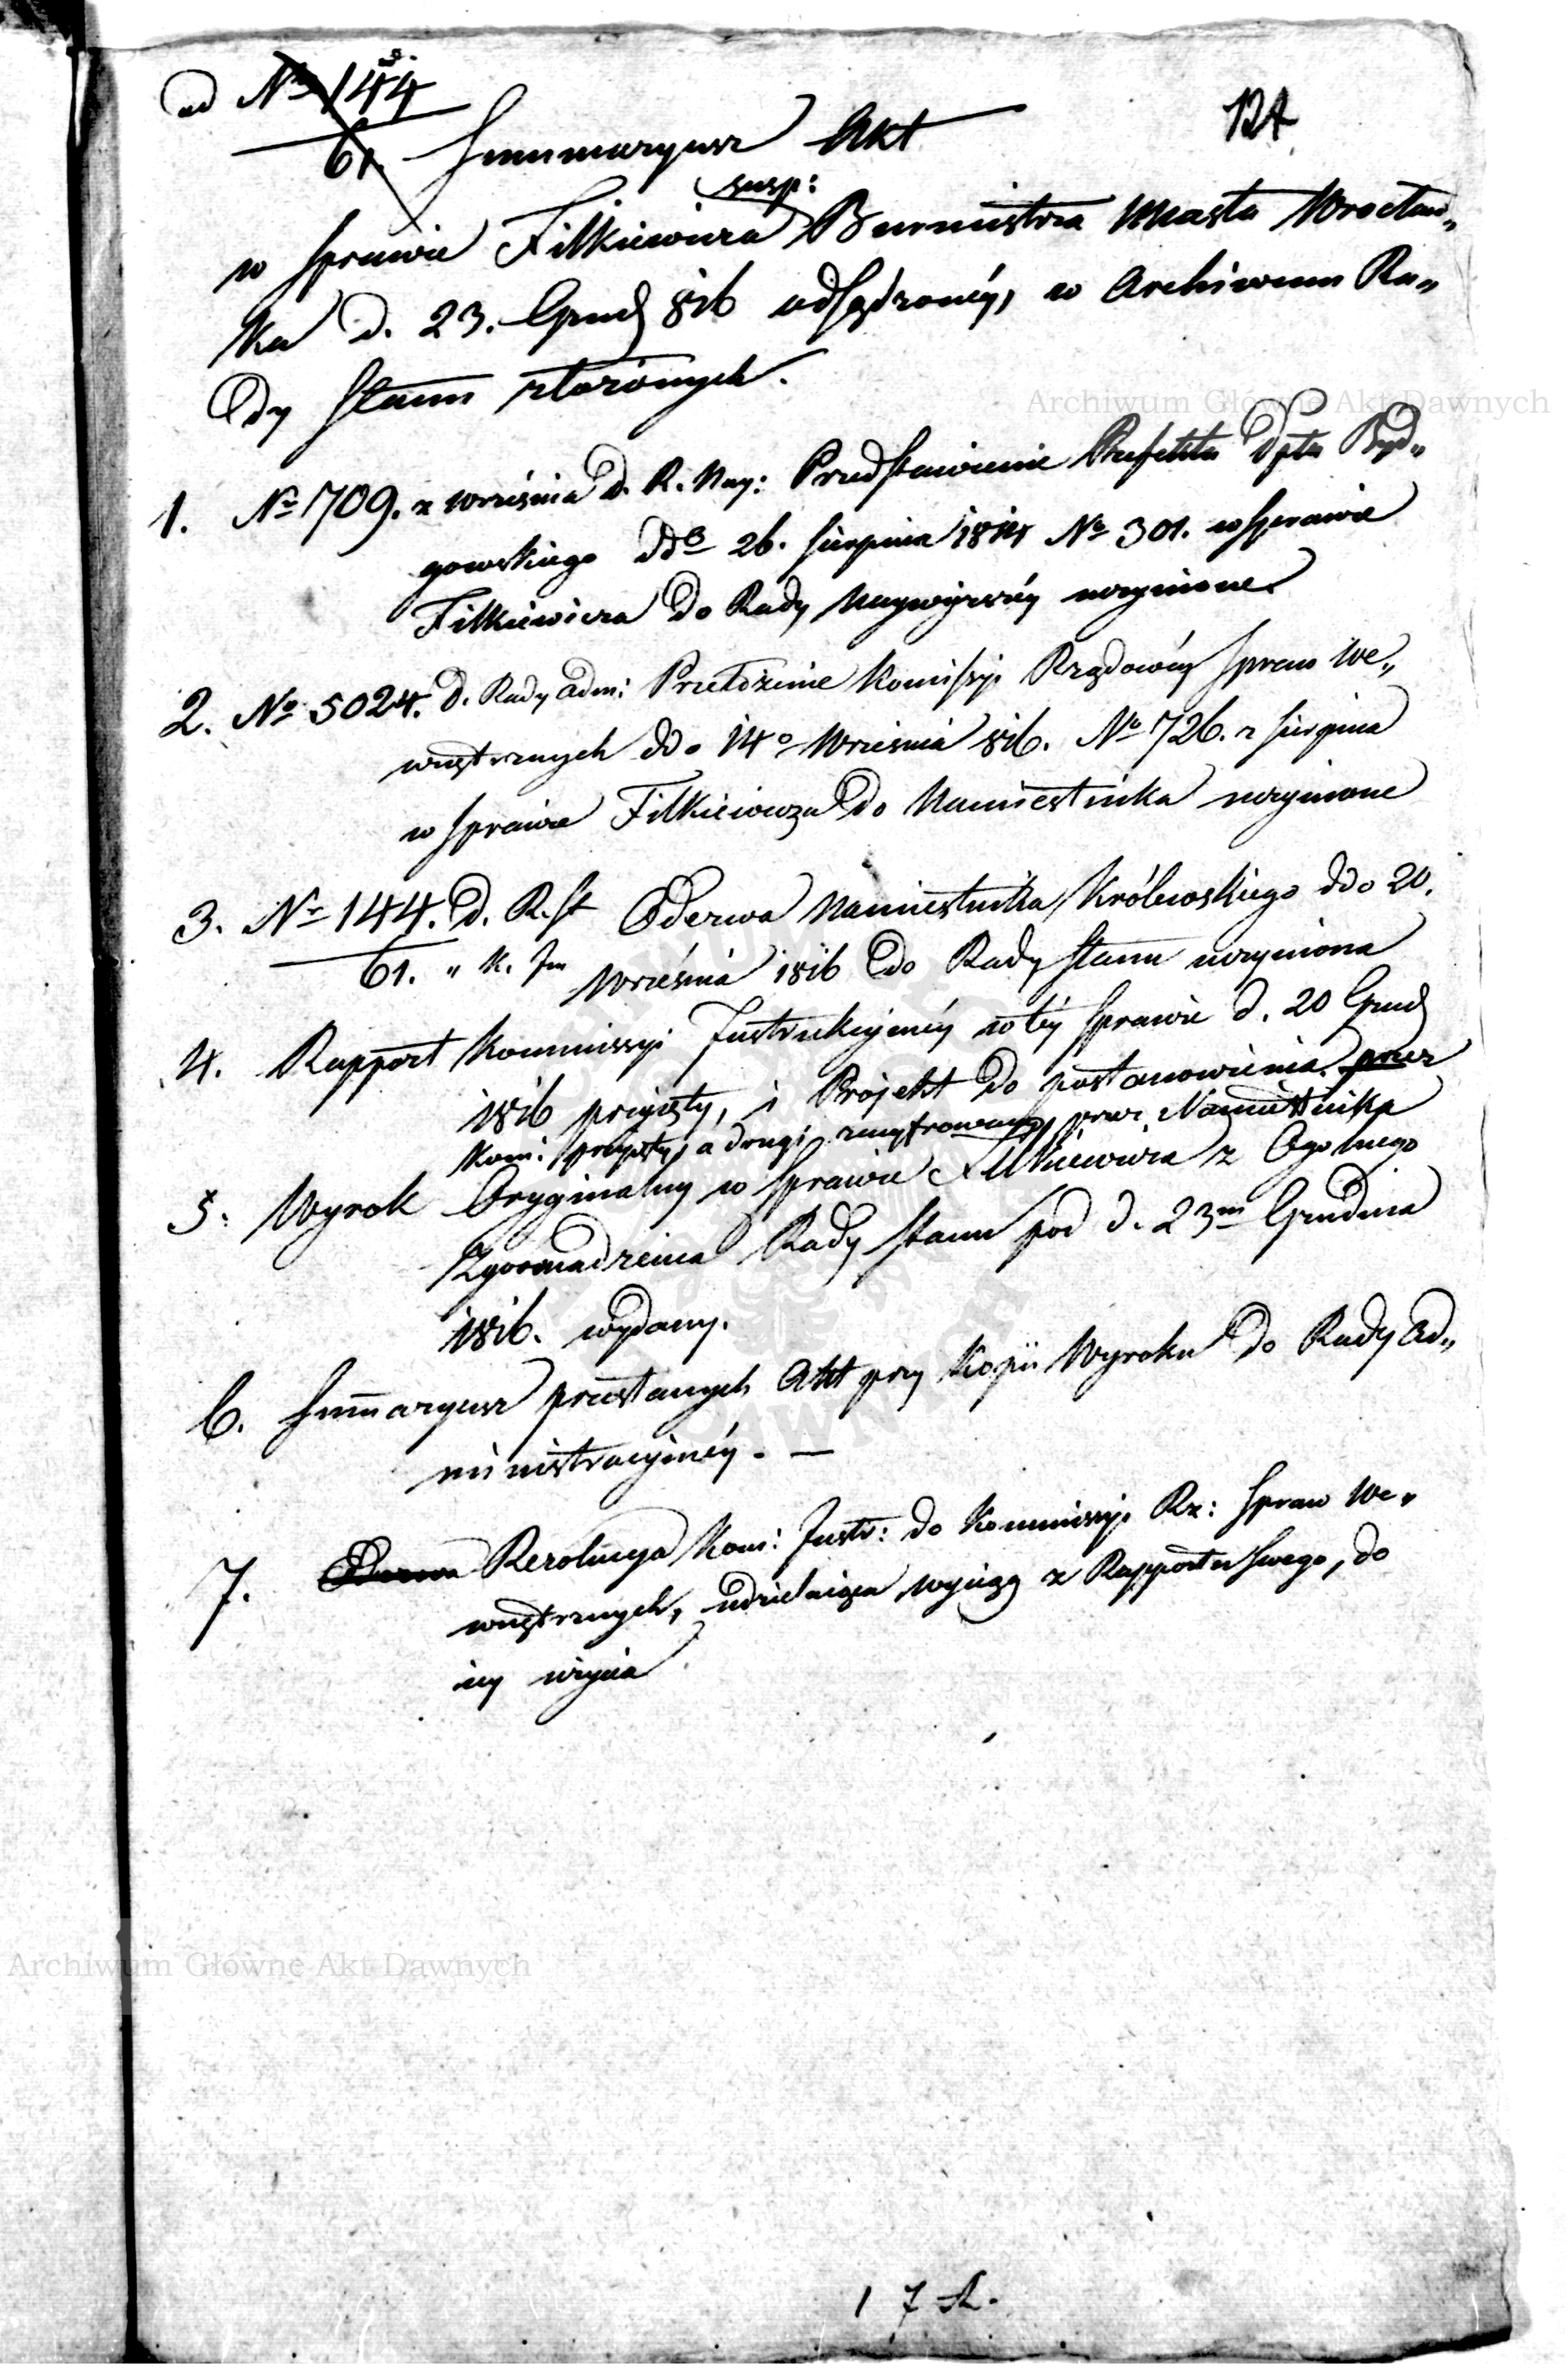 ad No 144
61.
124
Summaryusz Akt
susp:
w sprawie Filkiewicza Burmistrza Miasta Wrocław„
ka d. 23. Grud 816 odsądzonéy, w Archiwum Ra„
dy Stanu złożonych.
1. No 709. z Września d. R. Nay: Przedstawienie Prefekta Dptu Byd„
gowskiego dd 26. Sierpnia 1814 No 301. w sprawie
Filkiewicza do Rady Naywyższéy uczynione
2. No 5024. d. Rady Adm: Przełożenie Komissyi Rządowéy Spraw We„
wnętrznych ddo 14o Września 816. No 726. z Sierpnia
w sprawie Filkiewicza do Namiestnika uczynione
3. No 144. d. R. St Odezwa Namiestnika Królewskiego ddo 20.
61. „ K. Jn Września 1816 do Rady Stanu uczyniona
4. Rapport Kommissyi Instrukcyinéy w téy sprawie d. 20 Grud
1816 przyięty, i Projekt do postanowienia przez
Kom: przyięty, a drugi zacyfrowany przez Namiestnika
5. Wyrok Oryginalny w sprawie Filkiewicza z Ogolnego
Zgromadzenia Rady Stanu pod d. 23m Grudnia
1816. wydany.
6. Summaryusz przesłanych Akt przy Kopii Wyroku do Rady Ad„
ministracyinéy. —
7. Odezwa Rezolucya Kom: Instr: do Kommissyi Rz: Spraw We„
wnętrznych, udzielaiąca wyciąg z Rapportu swego, do
iey użycia
1 7
Archiwum Główne Akt Dawnych
Archiwum Główne Akt Dawnych